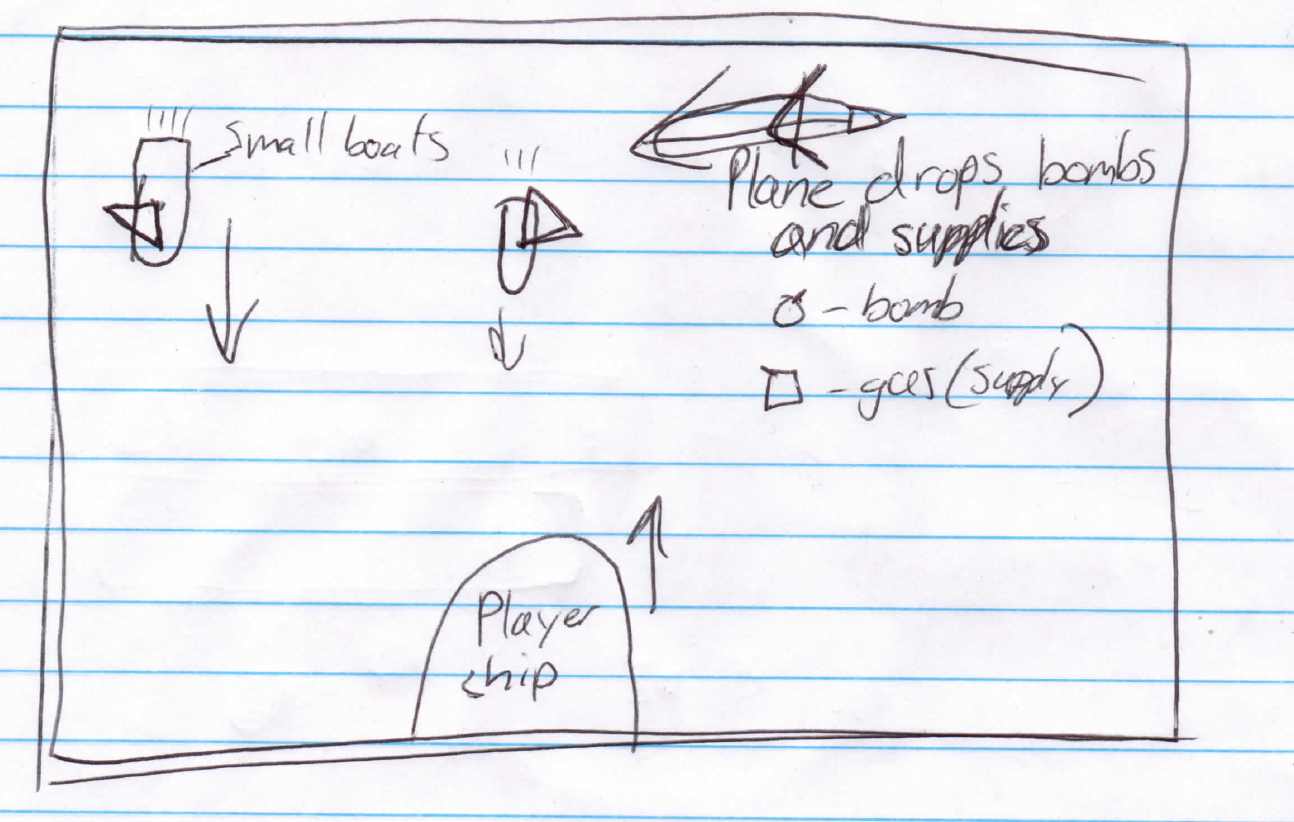 Small boats
Plane drops bombs
and supplies
- bomb
- gas (supply)
Player
ship